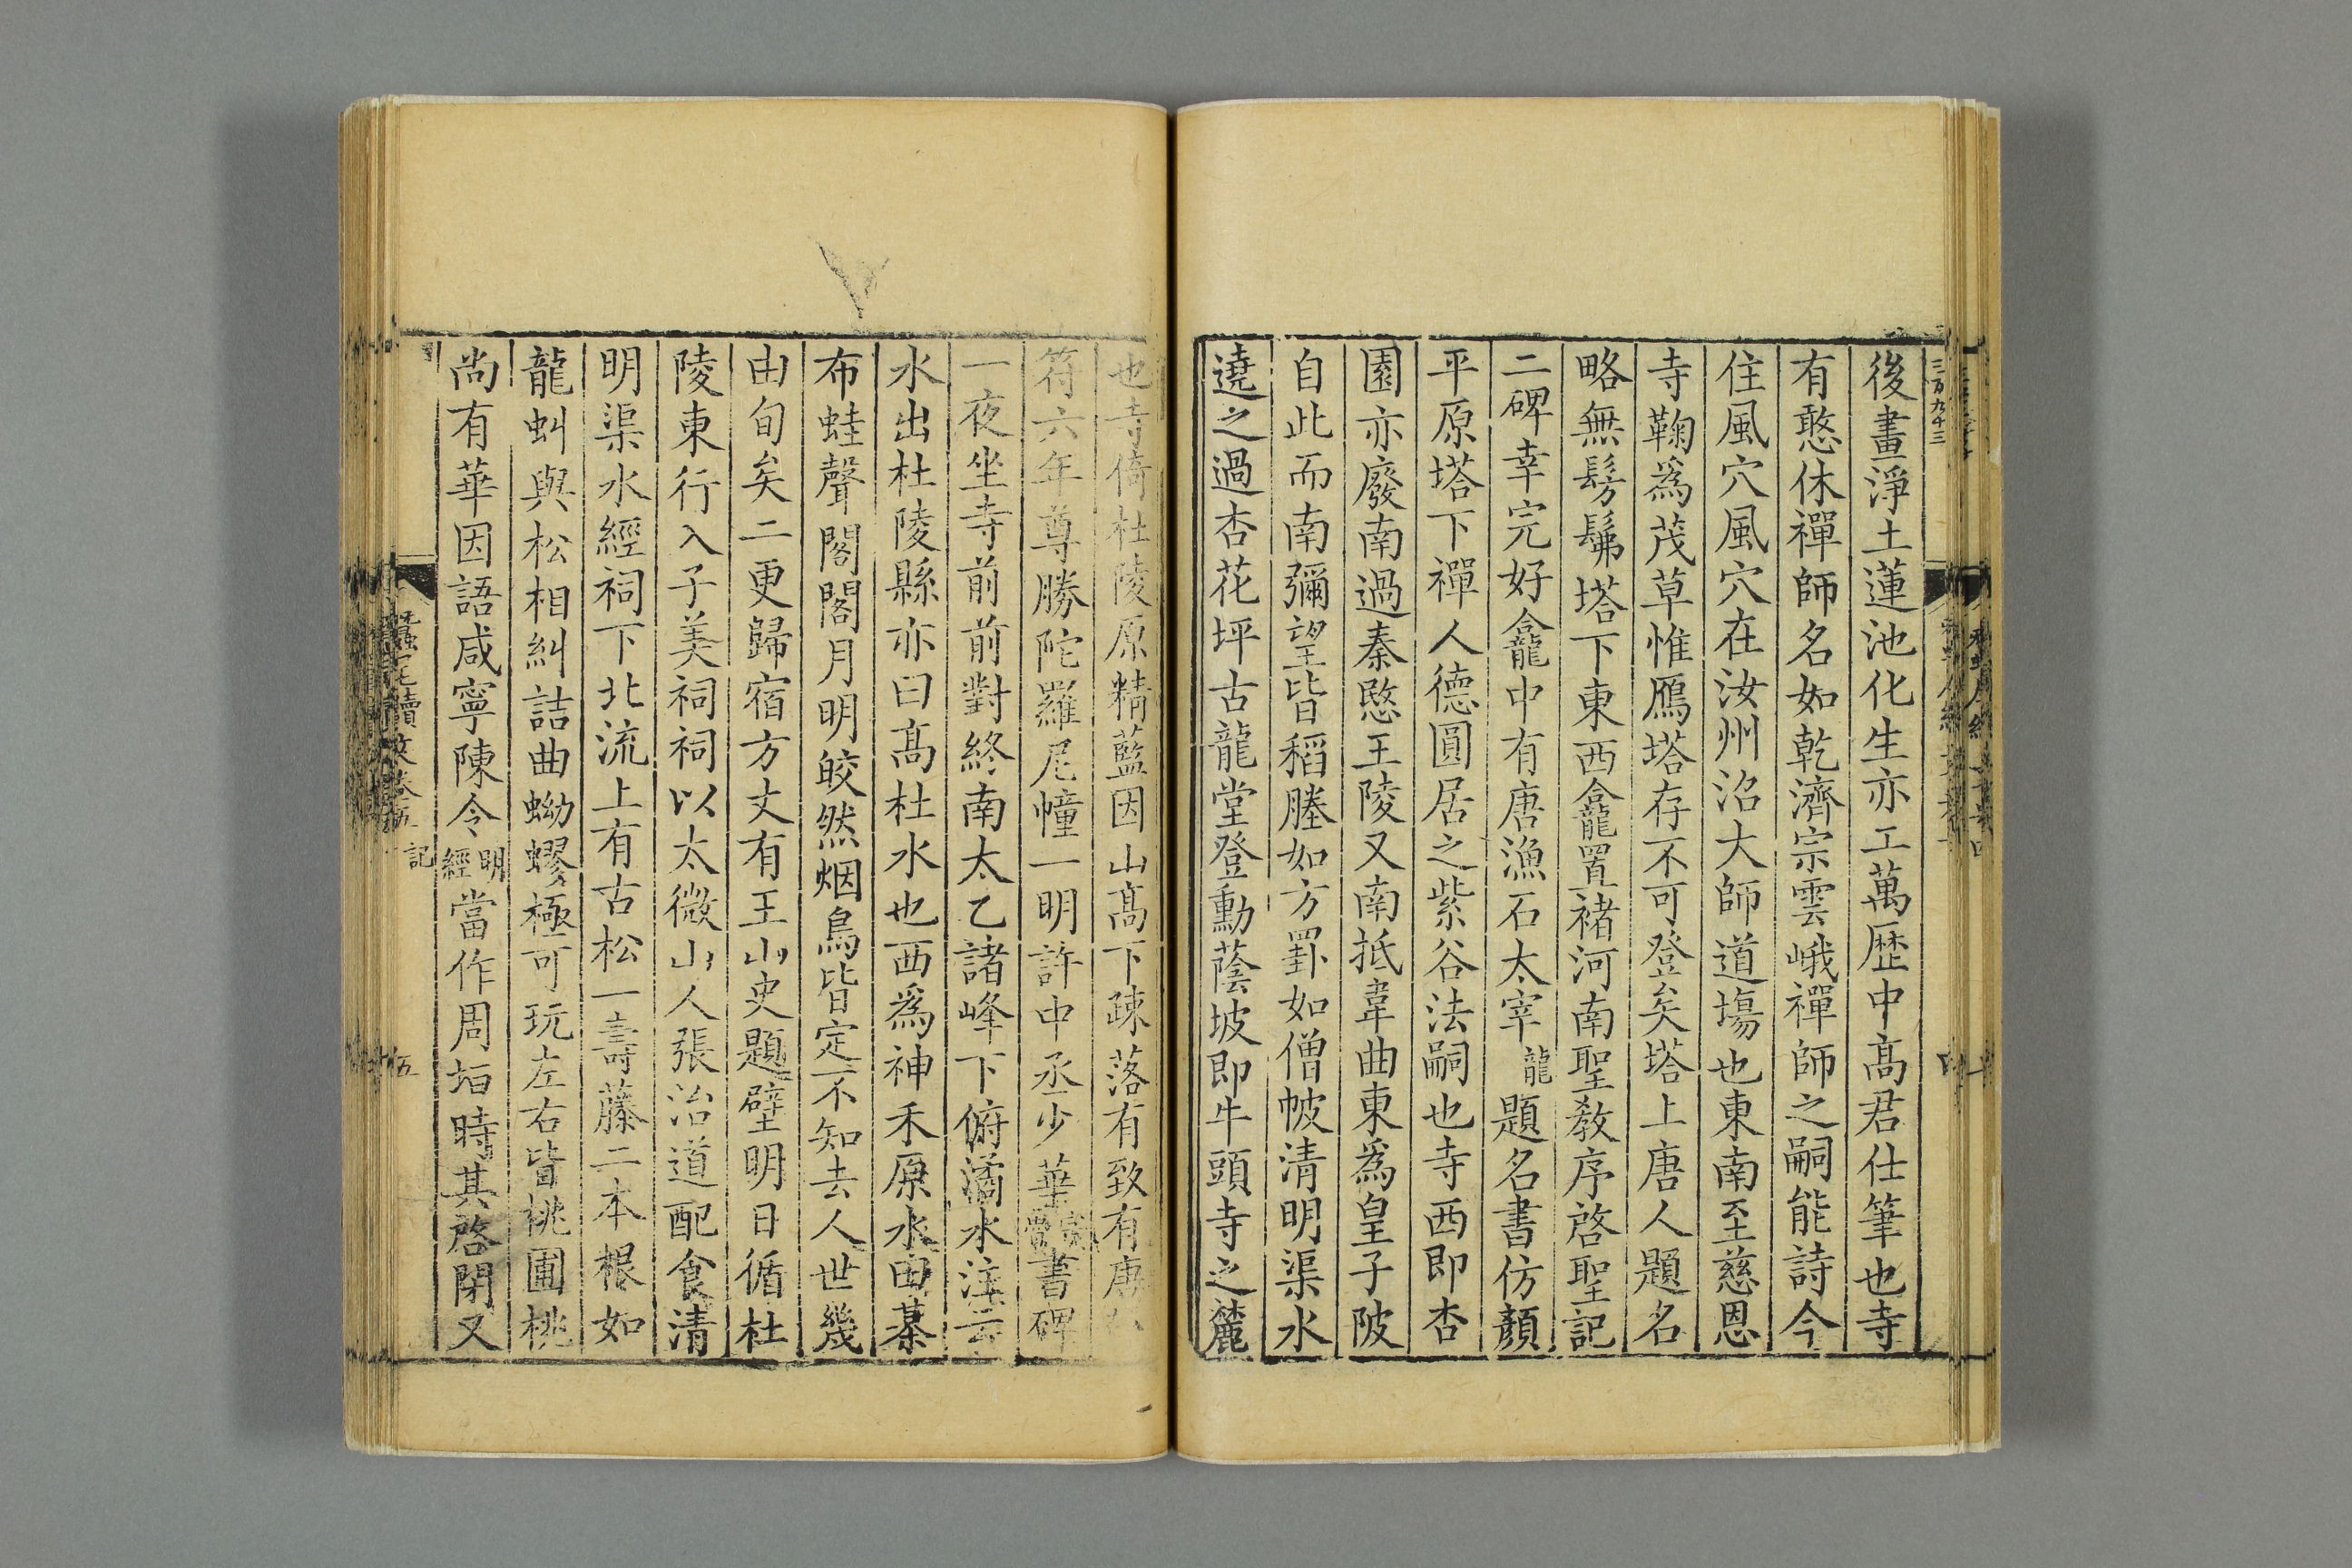 三百九十三
後畫淨土蓮池化生亦工萬歷中髙君仕筆也寺
有憨休禪師名如乾濟宗雲峨禪師之嗣能詩今
住風穴風穴在汝州沿大師道場也東南至慈恩
寺鞠爲茂草惟鴈塔存不可登矣塔上唐人題名
略無髣髴塔下東西龕置褚河南聖敎序啓聖記
二碑幸完好龕中有唐漁石太宰龍題名書仿顏
平原塔下禪人德圓居之紫谷法嗣也寺西即杏
園亦廢南過秦愍王陵又南抵韋曲東爲皇子陂
自此而南彌望皆稻塍如方罫如僧帔清明渠水
遶之過杏花坪古龍堂登勳蔭坡即牛頭寺之麓
也寺倚杜陵原精藍因山髙下疎落有致有唐
符六年尊勝陀羅尼幢一明許中丞少華宗魯書碑
一夜坐寺前前對終南太乙諸峰下俯潏水注云
水出杜陵縣亦曰髙杜水也西爲神禾原水田棊
布蛙聲閣閣月明皎然烟鳥皆定不知去人世幾
由旬矣二更歸宿方丈有王山史題壁明日循杜
陵東行入子美祠祠以太微山人張治道配食清
明渠水經祠下北流上有古松一壽藤二本根如
龍虯與松相糾詰曲蚴蟉極可玩左右皆桃圃桃
尚有華因語咸寧陳令明經當作周垣時其啓閉又
蠶尾續文卷五 記 五